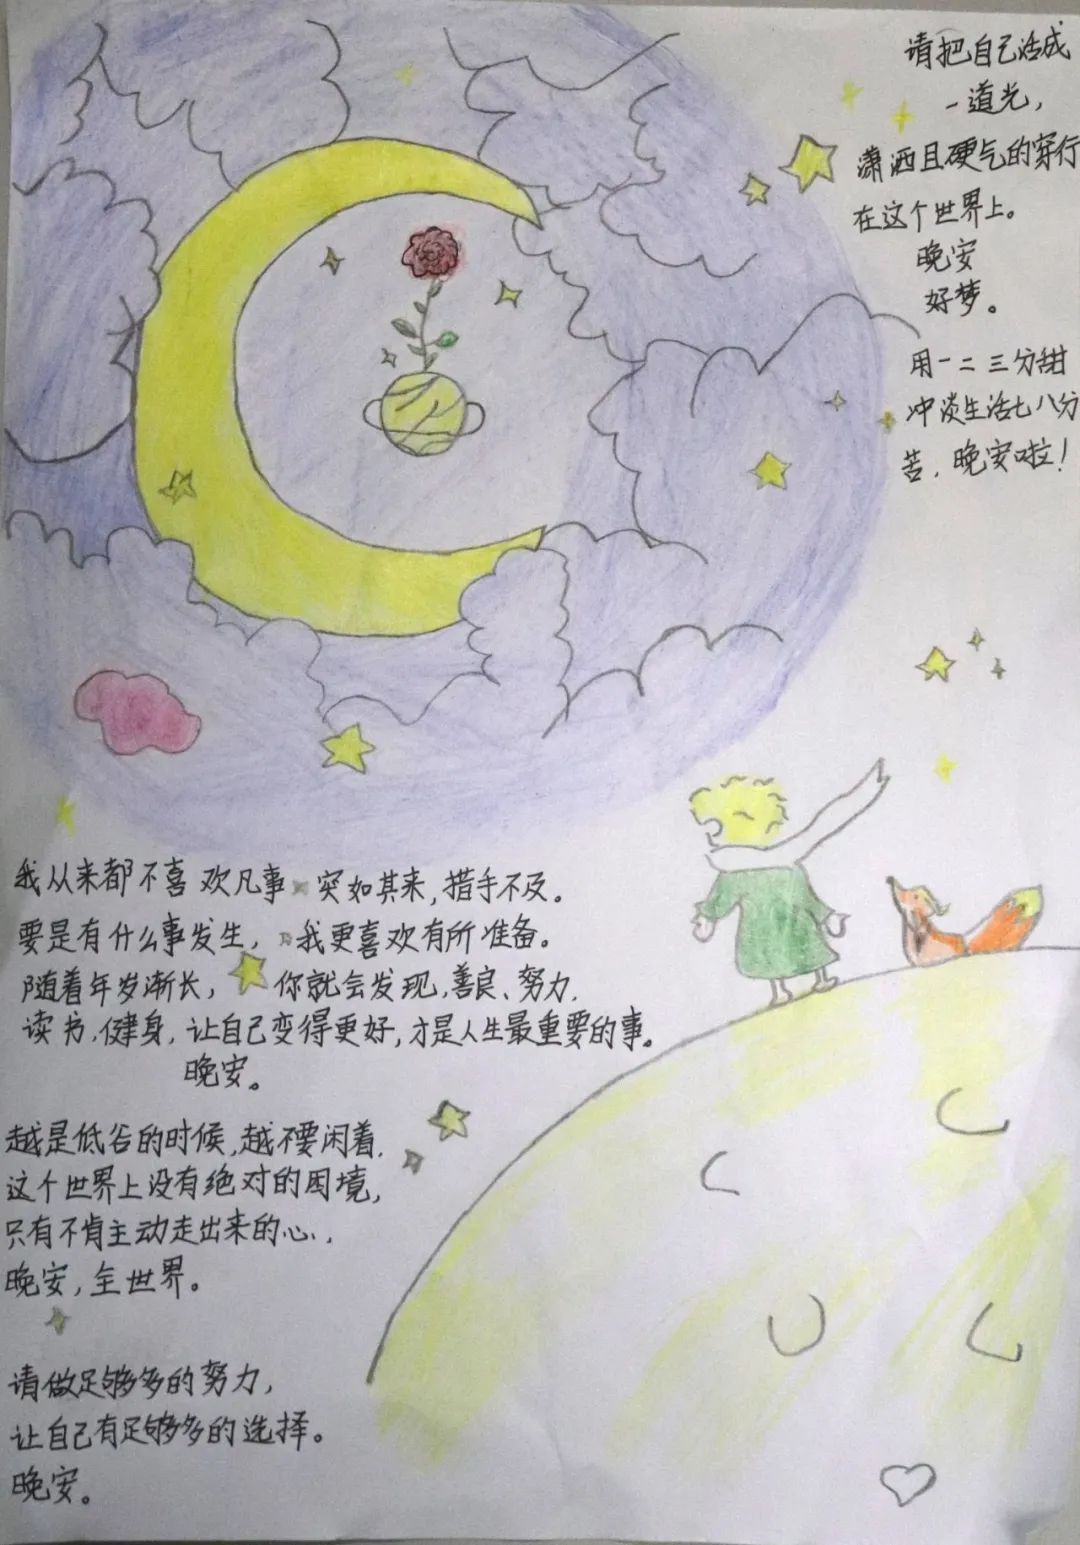 请把自己活成
一道光，
潇洒且硬气的穿行
在这个世界上。
晚安
好梦。
用一二三分甜
冲淡生活七八分
苦，晚安啦！
我从来都不喜欢凡事突如其来，措手不及。
要是有什么事发生，我更喜欢有所准备。
随着年岁渐长，你就会发现，善良、努力，
读书，健身，让自己变得更好，才是人生最重要的事。
晚安。
越是低谷的时候，越不要闲着，
这个世界上没有绝对的困境，
只有不肯主动走出来的心，
晚安，全世界。
请做足够多的努力，
让自己有足够多的选择。
晚安。